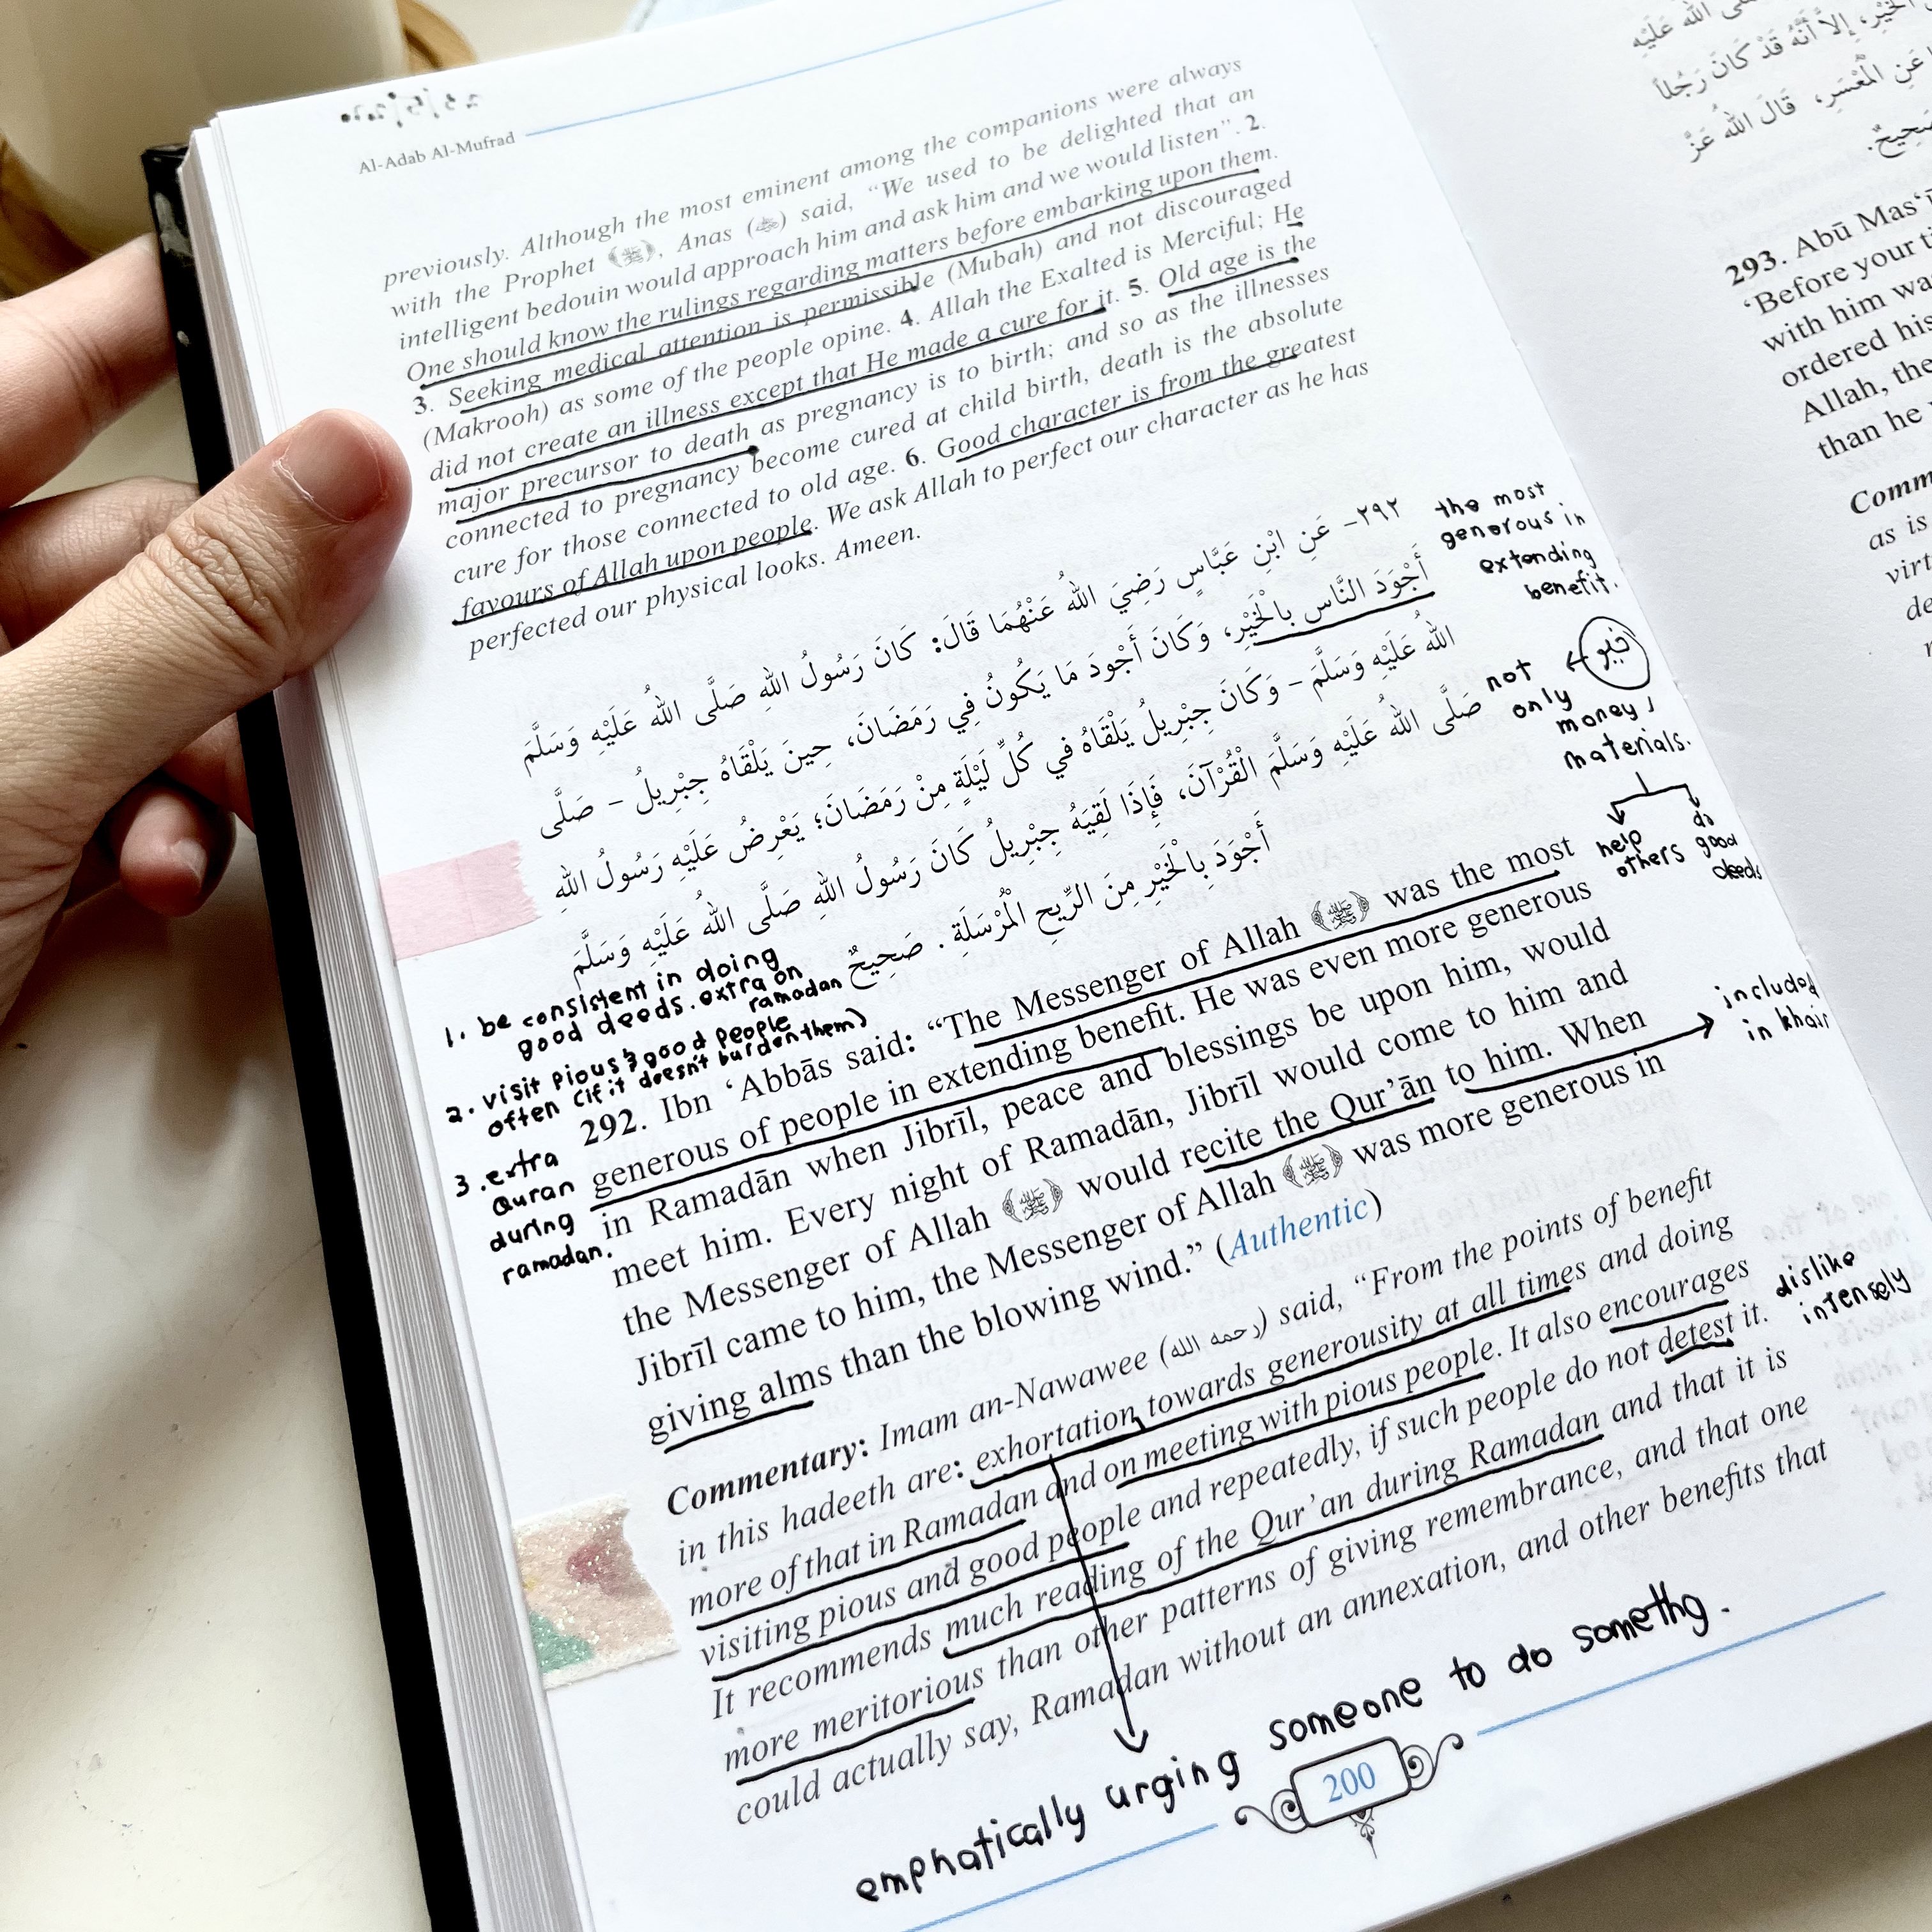 Al-Adab Al-Mufrad
previously. Although the most eminent among the companions were always
with the Prophet (ﷺ), Anas () said, “We used to be delighted that an
intelligent bedouin would approach him and ask him and we would listen”. 2.
One should know the rulings regarding matters before embarking upon them.
3. Seeking medical attention is permissible (Mubah) and not discouraged
(Makrooh) as some of the people opine. 4. Allah the Exalted is Merciful; He
did not create an illness except that He made a cure for it. 5. Old age is the
major precursor to death as pregnancy is to birth; and so as the illnesses
connected to pregnancy become cured at child birth, death is the absolute
cure for those connected to old age. 6. Good character is from the greatest
favours of Allah upon people. We ask Allah to perfect our character as he has
perfected our physical looks. Ameen.
٢٩٢- عَنِ ابْنِ عَبَّاسٍ رَضِيَ اللهُ عَنْهُمَا قَالَ: كَانَ رَسُولُ اللهِ صَلَّى اللهُ عَلَيْهِ وَسَلَّمَ
أَجْوَدَ النَّاسِ بِالْخَيْرِ، وَكَانَ أَجْوَدَ مَا يَكُونُ فِي رَمَضَانَ، حِينَ يَلْقَاهُ جِبْرِيلُ - صَلَّى
اللهُ عَلَيْهِ وَسَلَّمَ - وَكَانَ جِبْرِيلُ يَلْقَاهُ فِي كُلِّ لَيْلَةٍ مِنْ رَمَضَانَ؛ يَعْرِضُ عَلَيْهِ رَسُولُ اللهِ
صَلَّى اللهُ عَلَيْهِ وَسَلَّمَ الْقُرْآنَ، فَإِذَا لَقِيَهُ جِبْرِيلُ كَانَ رَسُولُ اللهِ صَلَّى اللهُ عَلَيْهِ وَسَلَّمَ
أَجْوَدَ بِالْخَيْرِ مِنَ الرِّيحِ الْمُرْسَلَةِ . صَحِيحٌ
the most
generous in
extending
benefit.
خير
not
only
money,
materials.
help
others
do
good
deeds
1. be consistent in doing
good deeds. extra on
ramadan
2. visit pious & good people
often (if it doesn't burden them)
3. extra
Quran
during
ramadan.
292. Ibn ‘Abbās said: “The Messenger of Allah (ﷺ) was the most
generous of people in extending benefit. He was even more generous
in Ramadān when Jibrīl, peace and blessings be upon him, would
meet him. Every night of Ramadān, Jibrīl would come to him and
the Messenger of Allah (ﷺ) would recite the Qur’ān to him. When
Jibrīl came to him, the Messenger of Allah (ﷺ) was more generous in
giving alms than the blowing wind.” (Authentic)
included
in khair
Commentary: Imam an-Nawawee (رحمه الله) said, “From the points of benefit
in this hadeeth are: exhortation towards generousity at all times and doing
more of that in Ramadan and on meeting with pious people. It also encourages
visiting pious and good people and repeatedly, if such people do not detest it.
It recommends much reading of the Qur’an during Ramadan and that it is
more meritorious than other patterns of giving remembrance, and that one
could actually say, Ramadan without an annexation, and other benefits that
dislike
intensely
emphatically urging someone to do somethg.
200
صَلَّى اللهُ عَلَيْهِ
الْخَيْرِ، إِلاَّ أَنَّهُ قَدْ كَانَ رَجُلاً
عَنِ الْمُعْسِرِ، قَالَ اللهُ عَزَّ
صَحِيحٌ.
293. Abū Mas‘
‘Before your
with him
ordered his
Allah, the
than he
as is